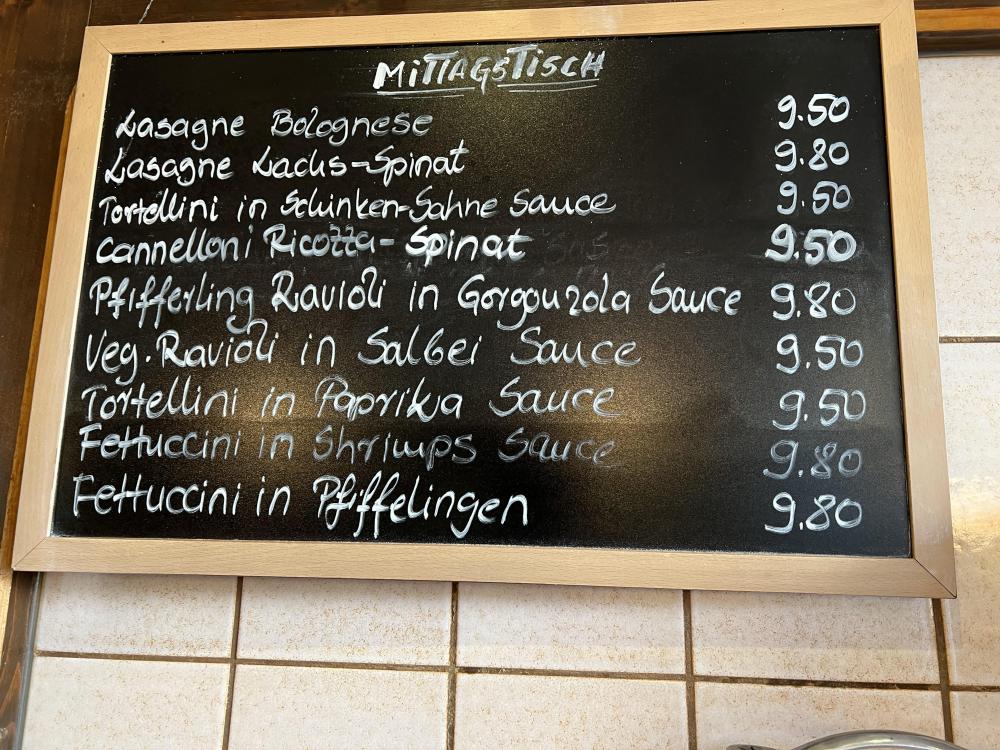 MITTAGSTISCH
Lasagne Bolognese 9.50
Lasagne Lachs-Spinat 9.80
Tortellini in Schinken-Sahne Sauce 9.50
Cannelloni Ricotta-Spinat 9.50
Pfifferling Ravioli in Gorgonzola Sauce 9.80
Veg. Ravioli in Salbei Sauce 9.50
Tortellini in Paprika Sauce 9.50
Fettuccini in Shrimps Sauce 9.80
Fettuccini in Pfiffelingen 9.80